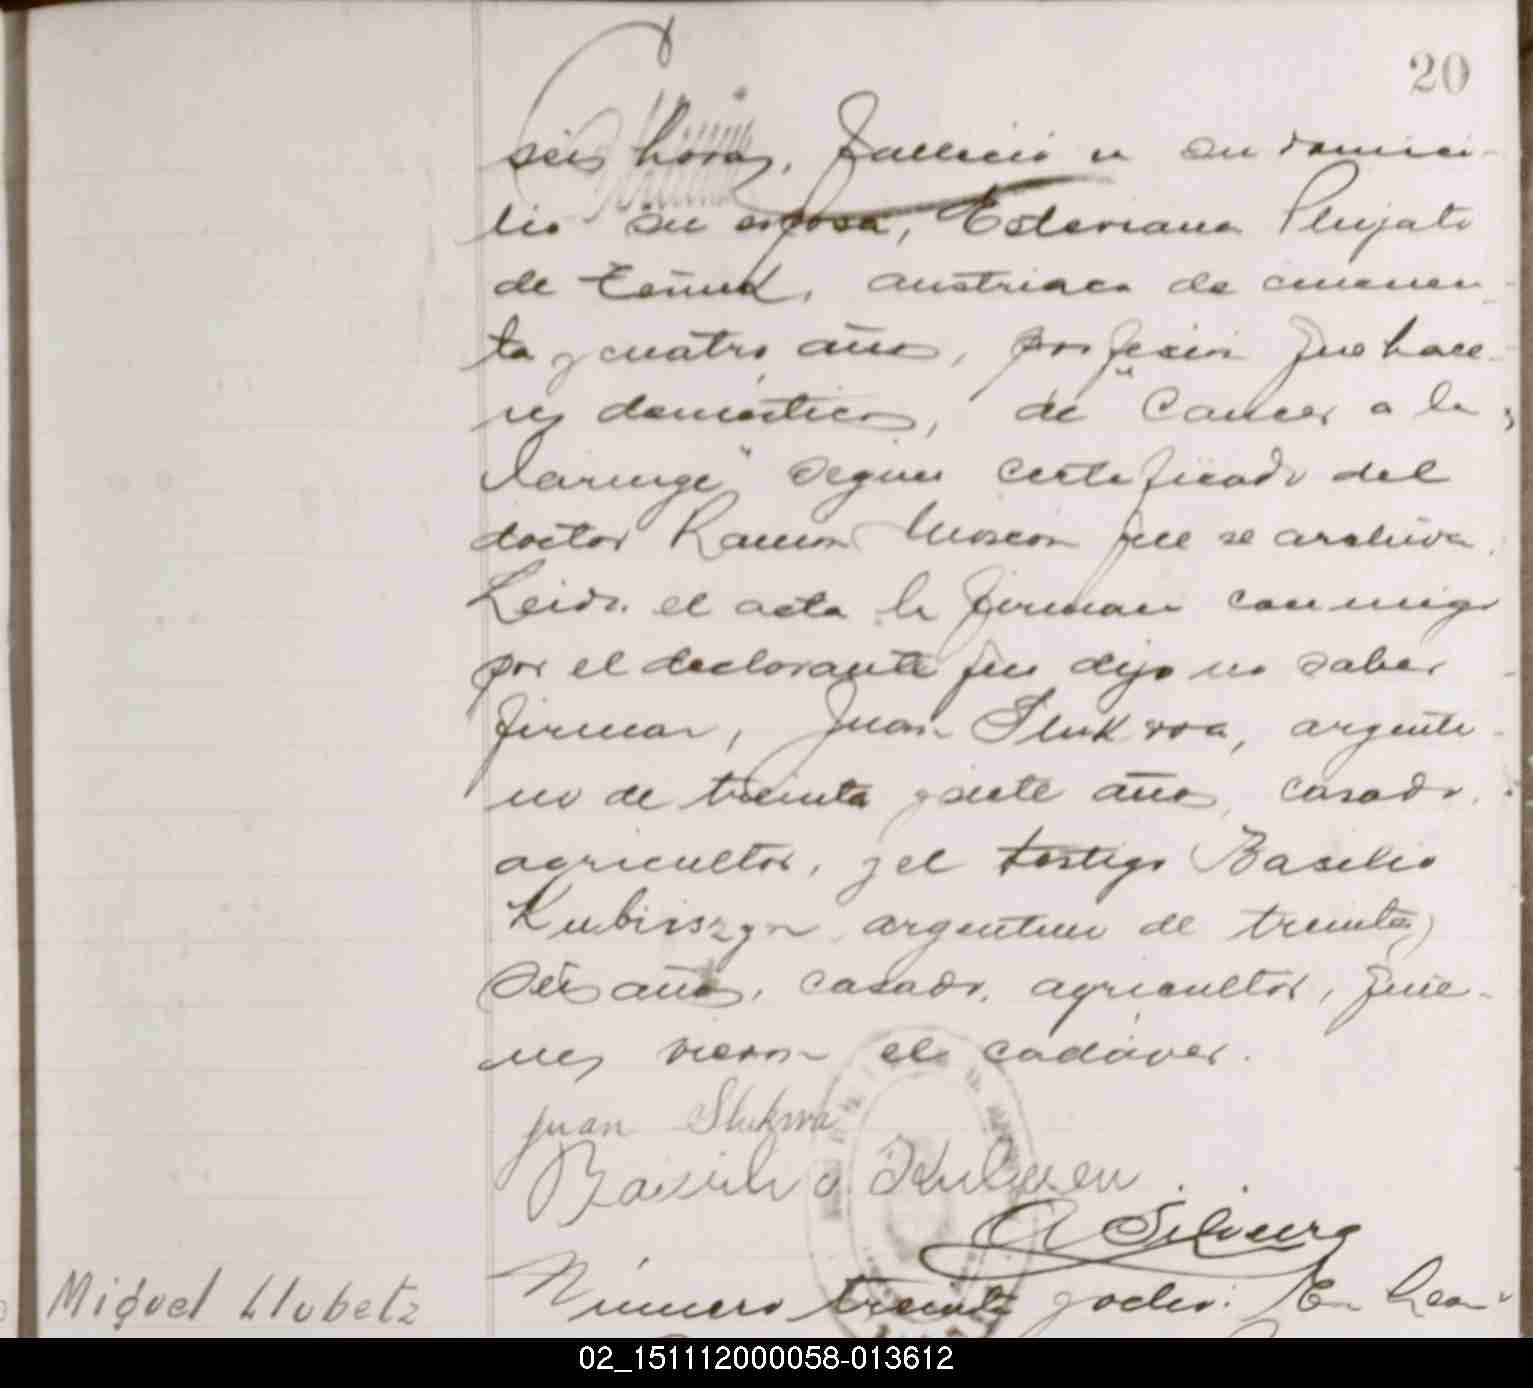 20
seis horas, fallecio en su domici-
lio su esposa, Esteviana Plujato
de austriaca de cincuen-
ta y cuatro años, profesión quehace-
res domésticos, de "Cancer a la
laringe" segun certificado del
doctor Ramon que se archiva.
Leida el acta la firman conmigo
por el declarante que dijo no saber
firmar, Juan Slukvoa, argenti-
no de treinta y siete años, casado,
agricultor, y el testigo Basilio
Kubiszyn argentino de treinta y
seis años, casado, agricultor, quie-
nes vieron el cadáver.
Juan Slukwa
Basilio
A Silveira
Miguel Llubetz
Número treinta y ocho: En Lean-
02_151112000058-013612